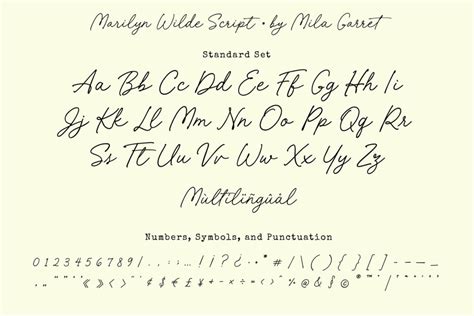 Marilyn Wilde Script • by Mila Garret
Standard Set
Aa Bb Cc Dd Ee Ff Gg Hh Ii
Jj Kk Ll Mm Nn Oo Pp Qq Rr
Ss Tt Uu Vv Ww Xx Yy Zz
Mùltilïñgûål
Numbers, Symbols, and Punctuation
0123456789/ . , : ; … ! ¡ ? ¿ · • * # / \ ( ) { } [ ] - – — _